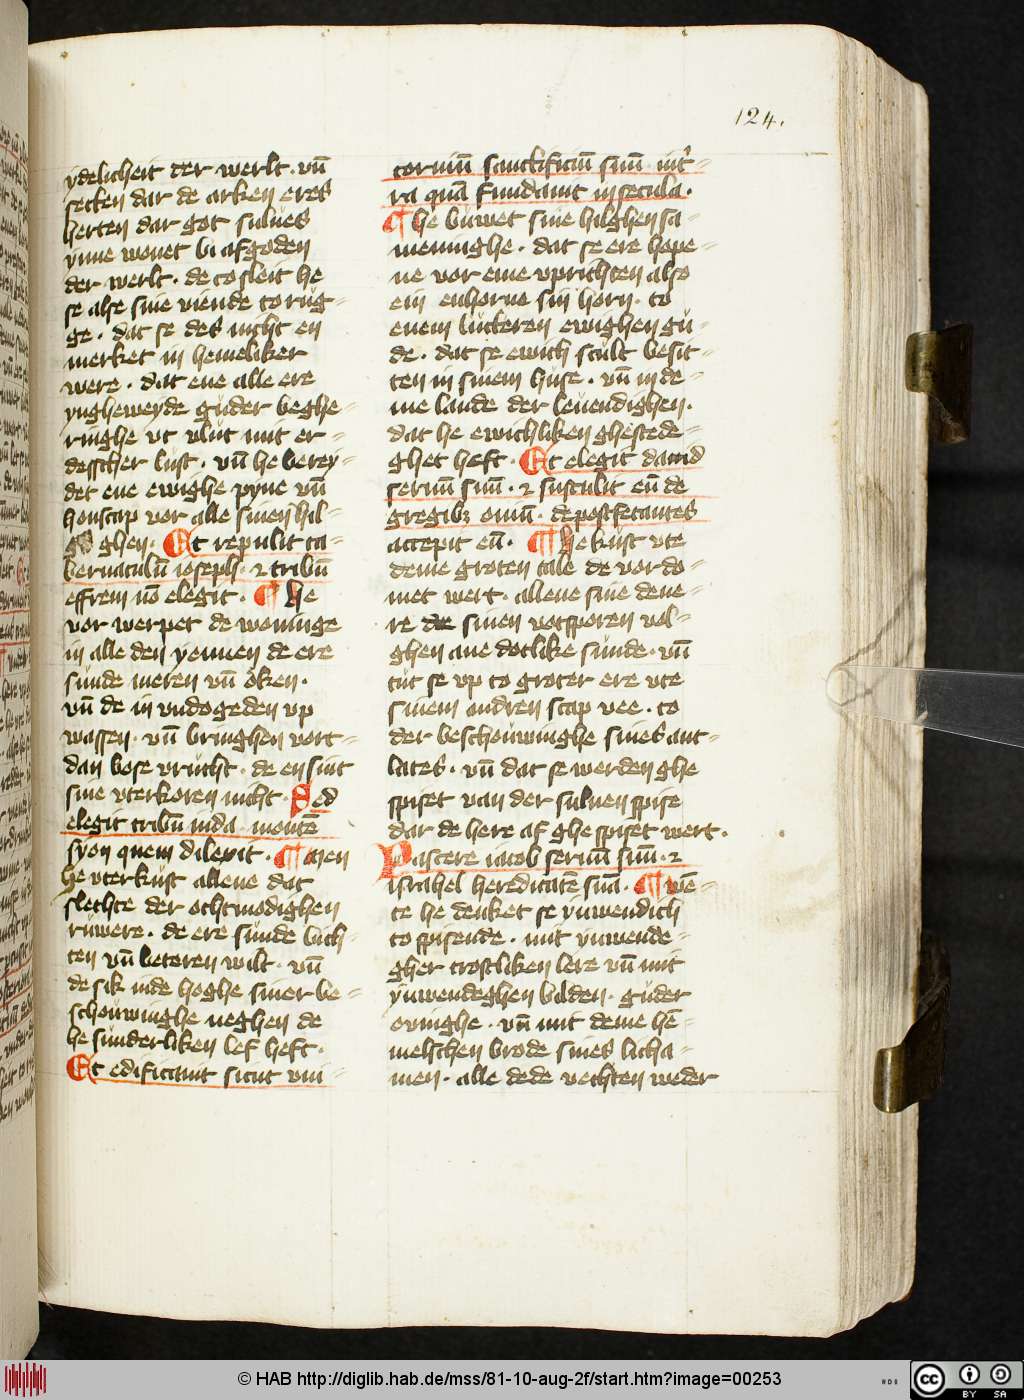 124.
ydelicheit der werlt · vn̄
secken dar de arken eres
herten dar got sulues
ynne wonet bi afgoden
der werlt · de to sleit he
se alse sine viende to rug=
ge · dat se des nicht en
merket in hemeliker
were · dat ene alle ere
yngheweyde guder beghe=
ringhe vt vlut mit er=
desscher lust · vn̄ he berey=
det ene ewighe pyne vn̄
honscap vor alle sinen hil=
ghen · Et repulit ta=
bernaculū ioseph · ⁊ tribū
effrem nō elegit · ¶ He
vor werpet de woninge
in alle den yennen de ere
sunde meren vn̄ oken ·
vn̄ de in vndogeden vp
wassen · vn̄ bringhen vort=
dan bose vrucht · de en sint
sine vterkoren nicht · Sed
elegit tribū iuda · montē
syon quem dilexit · ¶ Men
he vterkust allene dat
slechte der othmodighen
ruwere · de ere sunde bich=
ten vn̄ beteren wilt · vn̄
de sik in de hoghe siner be=
schouwinghe neghen de
he sunderliken lef heft ·
Et edificauit sicut vni=
cornium sanctificiū suū · in tr̄=
ra quā fundauit in secula ·
¶ he buwet sine hilghen sa=
meninghe · dat se ere hope=
ne vor eme vprichten also
ein enhorne sin horn · to
enem luckeren ewighen gu=
de · dat se ewich scult besit=
ten in sinem huse · vn̄ in de=
me lande der leuendighen ·
dat he ewichliken ghestede=
ghet heft · Et elegit dauid
seruū suū · ⁊ sustulit eū de
gregibꝫ ouiū · de post fetantes
accepit eū · ¶ He kust vte
deme groten tale de vordo=
met wert · allene sine dene=
re de sinen votsporen vol=
ghen ane dotlike sunde · vn̄
tut se vp to groter ere vte
sinem andren scap vee · to
der beschouwinghe sines ant=
lates · vn̄ dat se werden ghe
spiset van der suluen spise
dar de here af ghe spiset wert ·
Pascere iacob seruū suū · ⁊
israhel hereditatē suā · ¶ wē=
te he denket se ynwendich
to spisende · mit ynwende=
gher trostliken lere vn̄ mit
ynwendeghen bilden · guder
ouinghe · vn̄ mit deme hē=
melschen brode sines licha=
men · alle dede vechten weder
© HAB http://diglib.hab.de/mss/81-10-aug-2f/start.htm?image=00253
CC BY SA